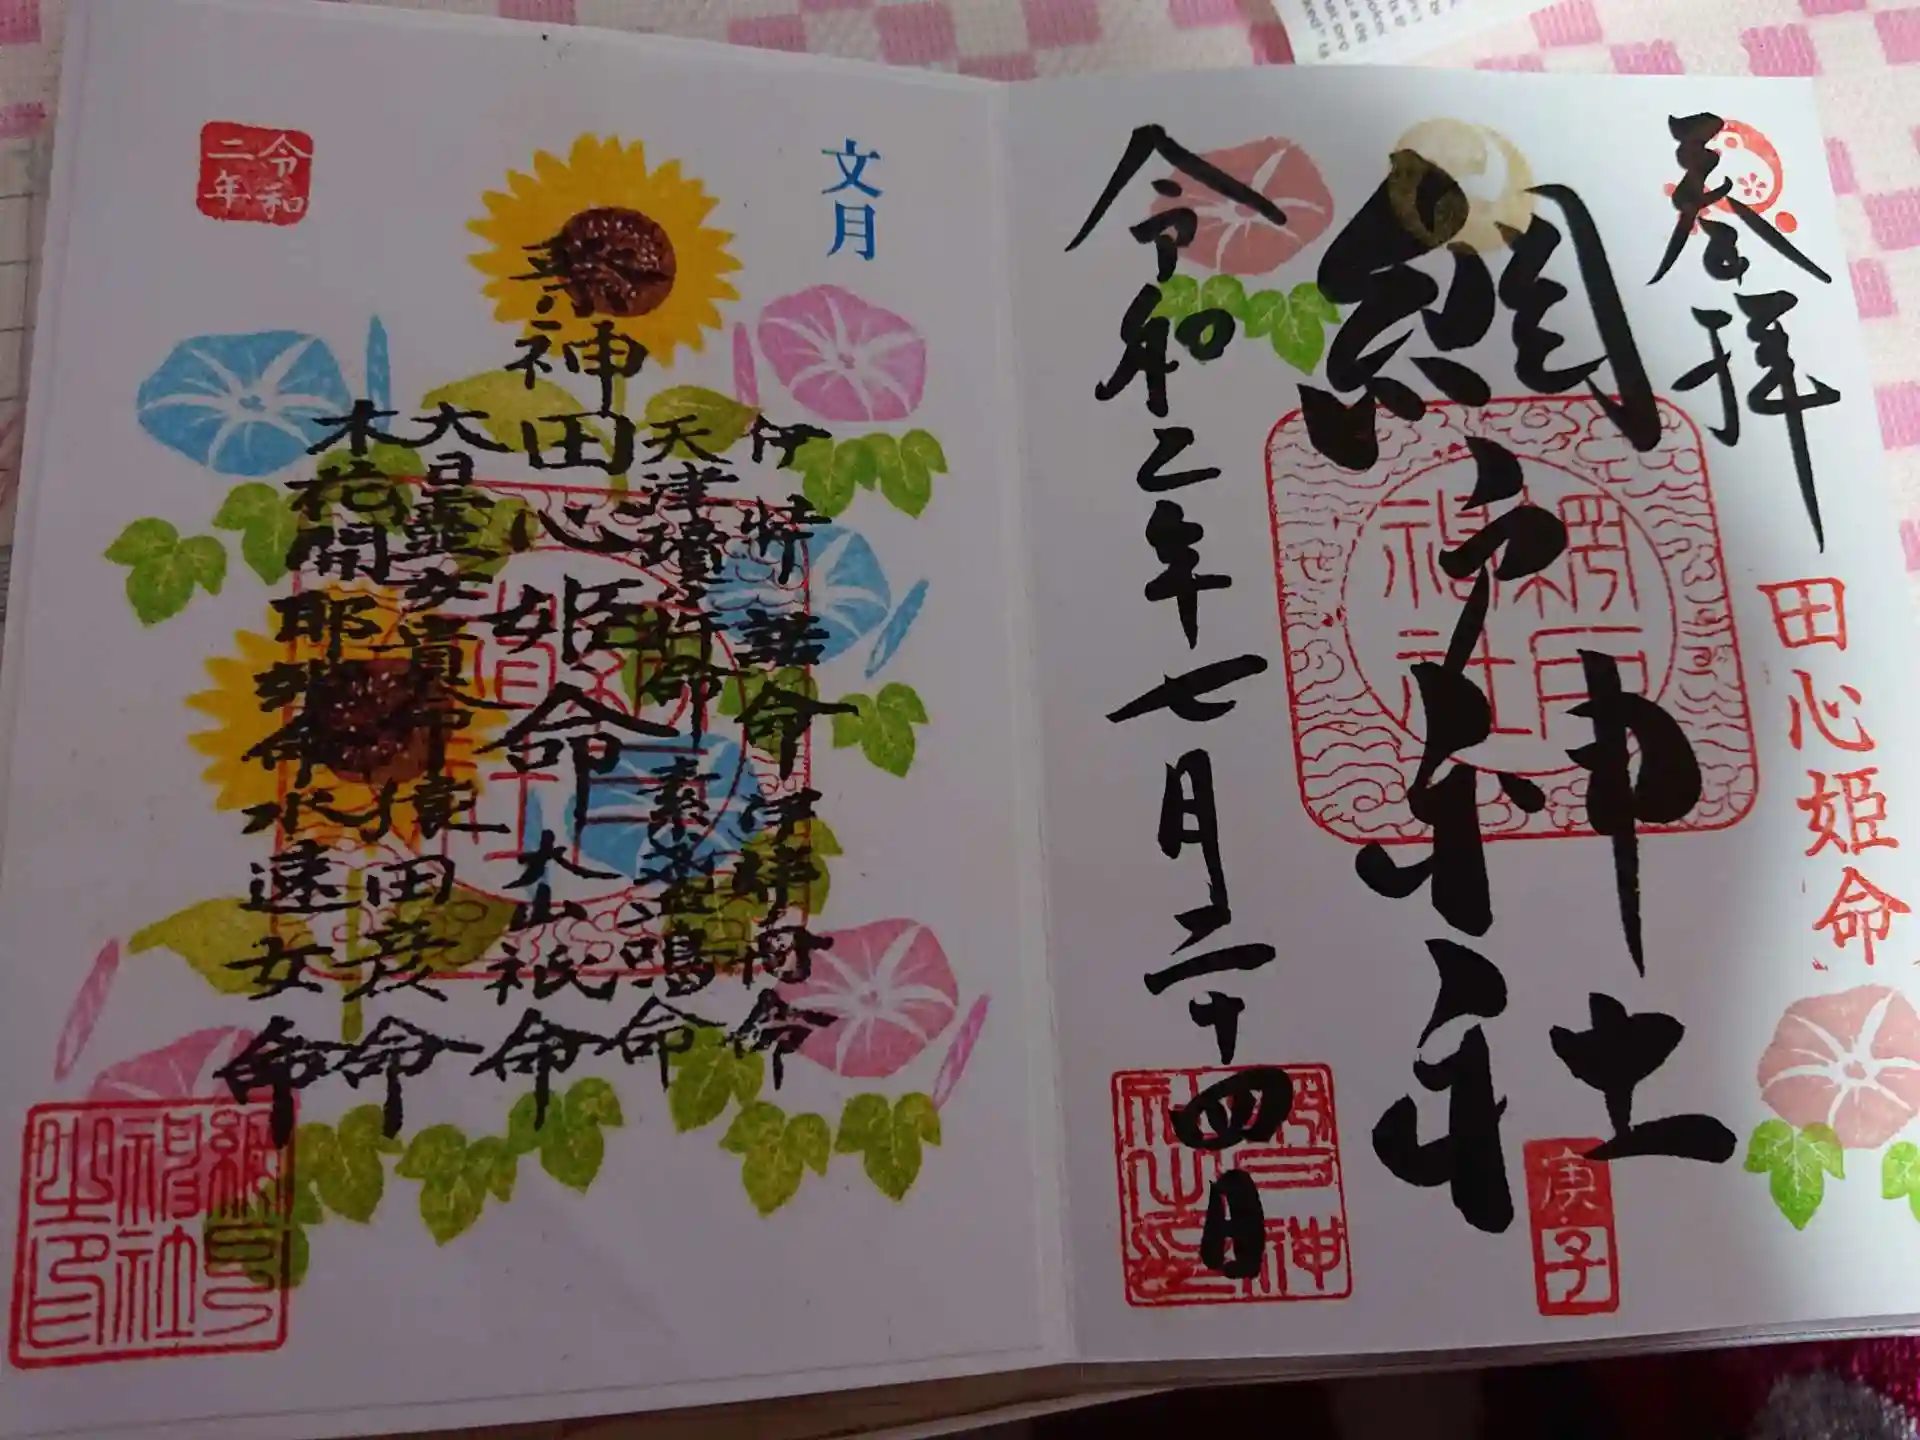 奉拝
田心姫命
網戸神社
網戸神社
庚子
令和二年七月二十四日
文月
伊弉諾命 伊弉冉命
天津瓊々杵命 素盞嗚命
祭神
田心姫命 大山祇命
大日孁女貴命 猿田彦命
木花開耶姫命 水速女命
令和
二年
網戸
神社
之印